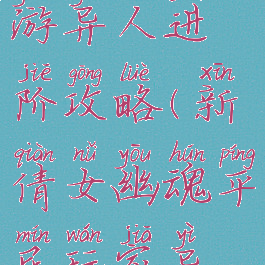 游异人进
jiē gōng lüè xīn
阶攻略(新
qiàn nǚ yōu hún píng
倩女幽魂平
mín wán jiā yì
民玩家异